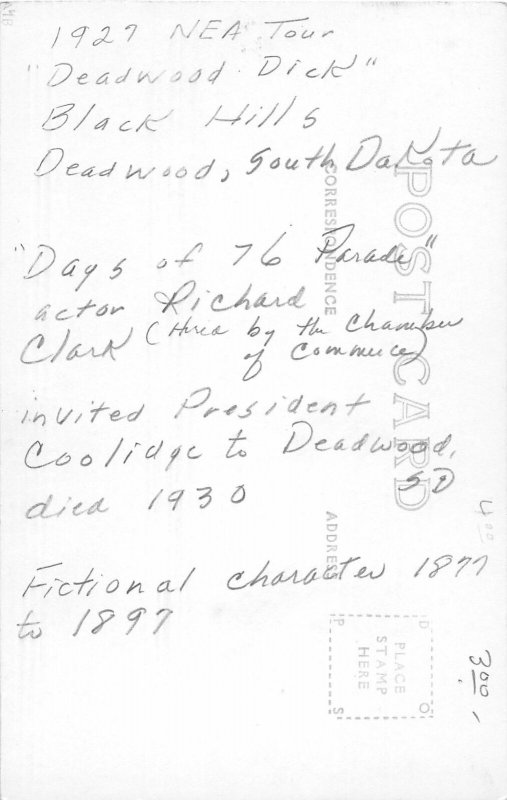 1927 NEA Tour
"Deadwood Dick"
Black Hills
Deadwood, South Dakota
"Days of 76 Parade"
actor Richard
Clark (Hired by the Chamber
of Commerce)
invited President
Coolidge to Deadwood,
SD
died 1930
Fictional character 1877
to 1897
POST CARD
CORRESPONDENCE
ADDRESS
PLACE
STAMP
HERE
D O
P S
4.00
3.00